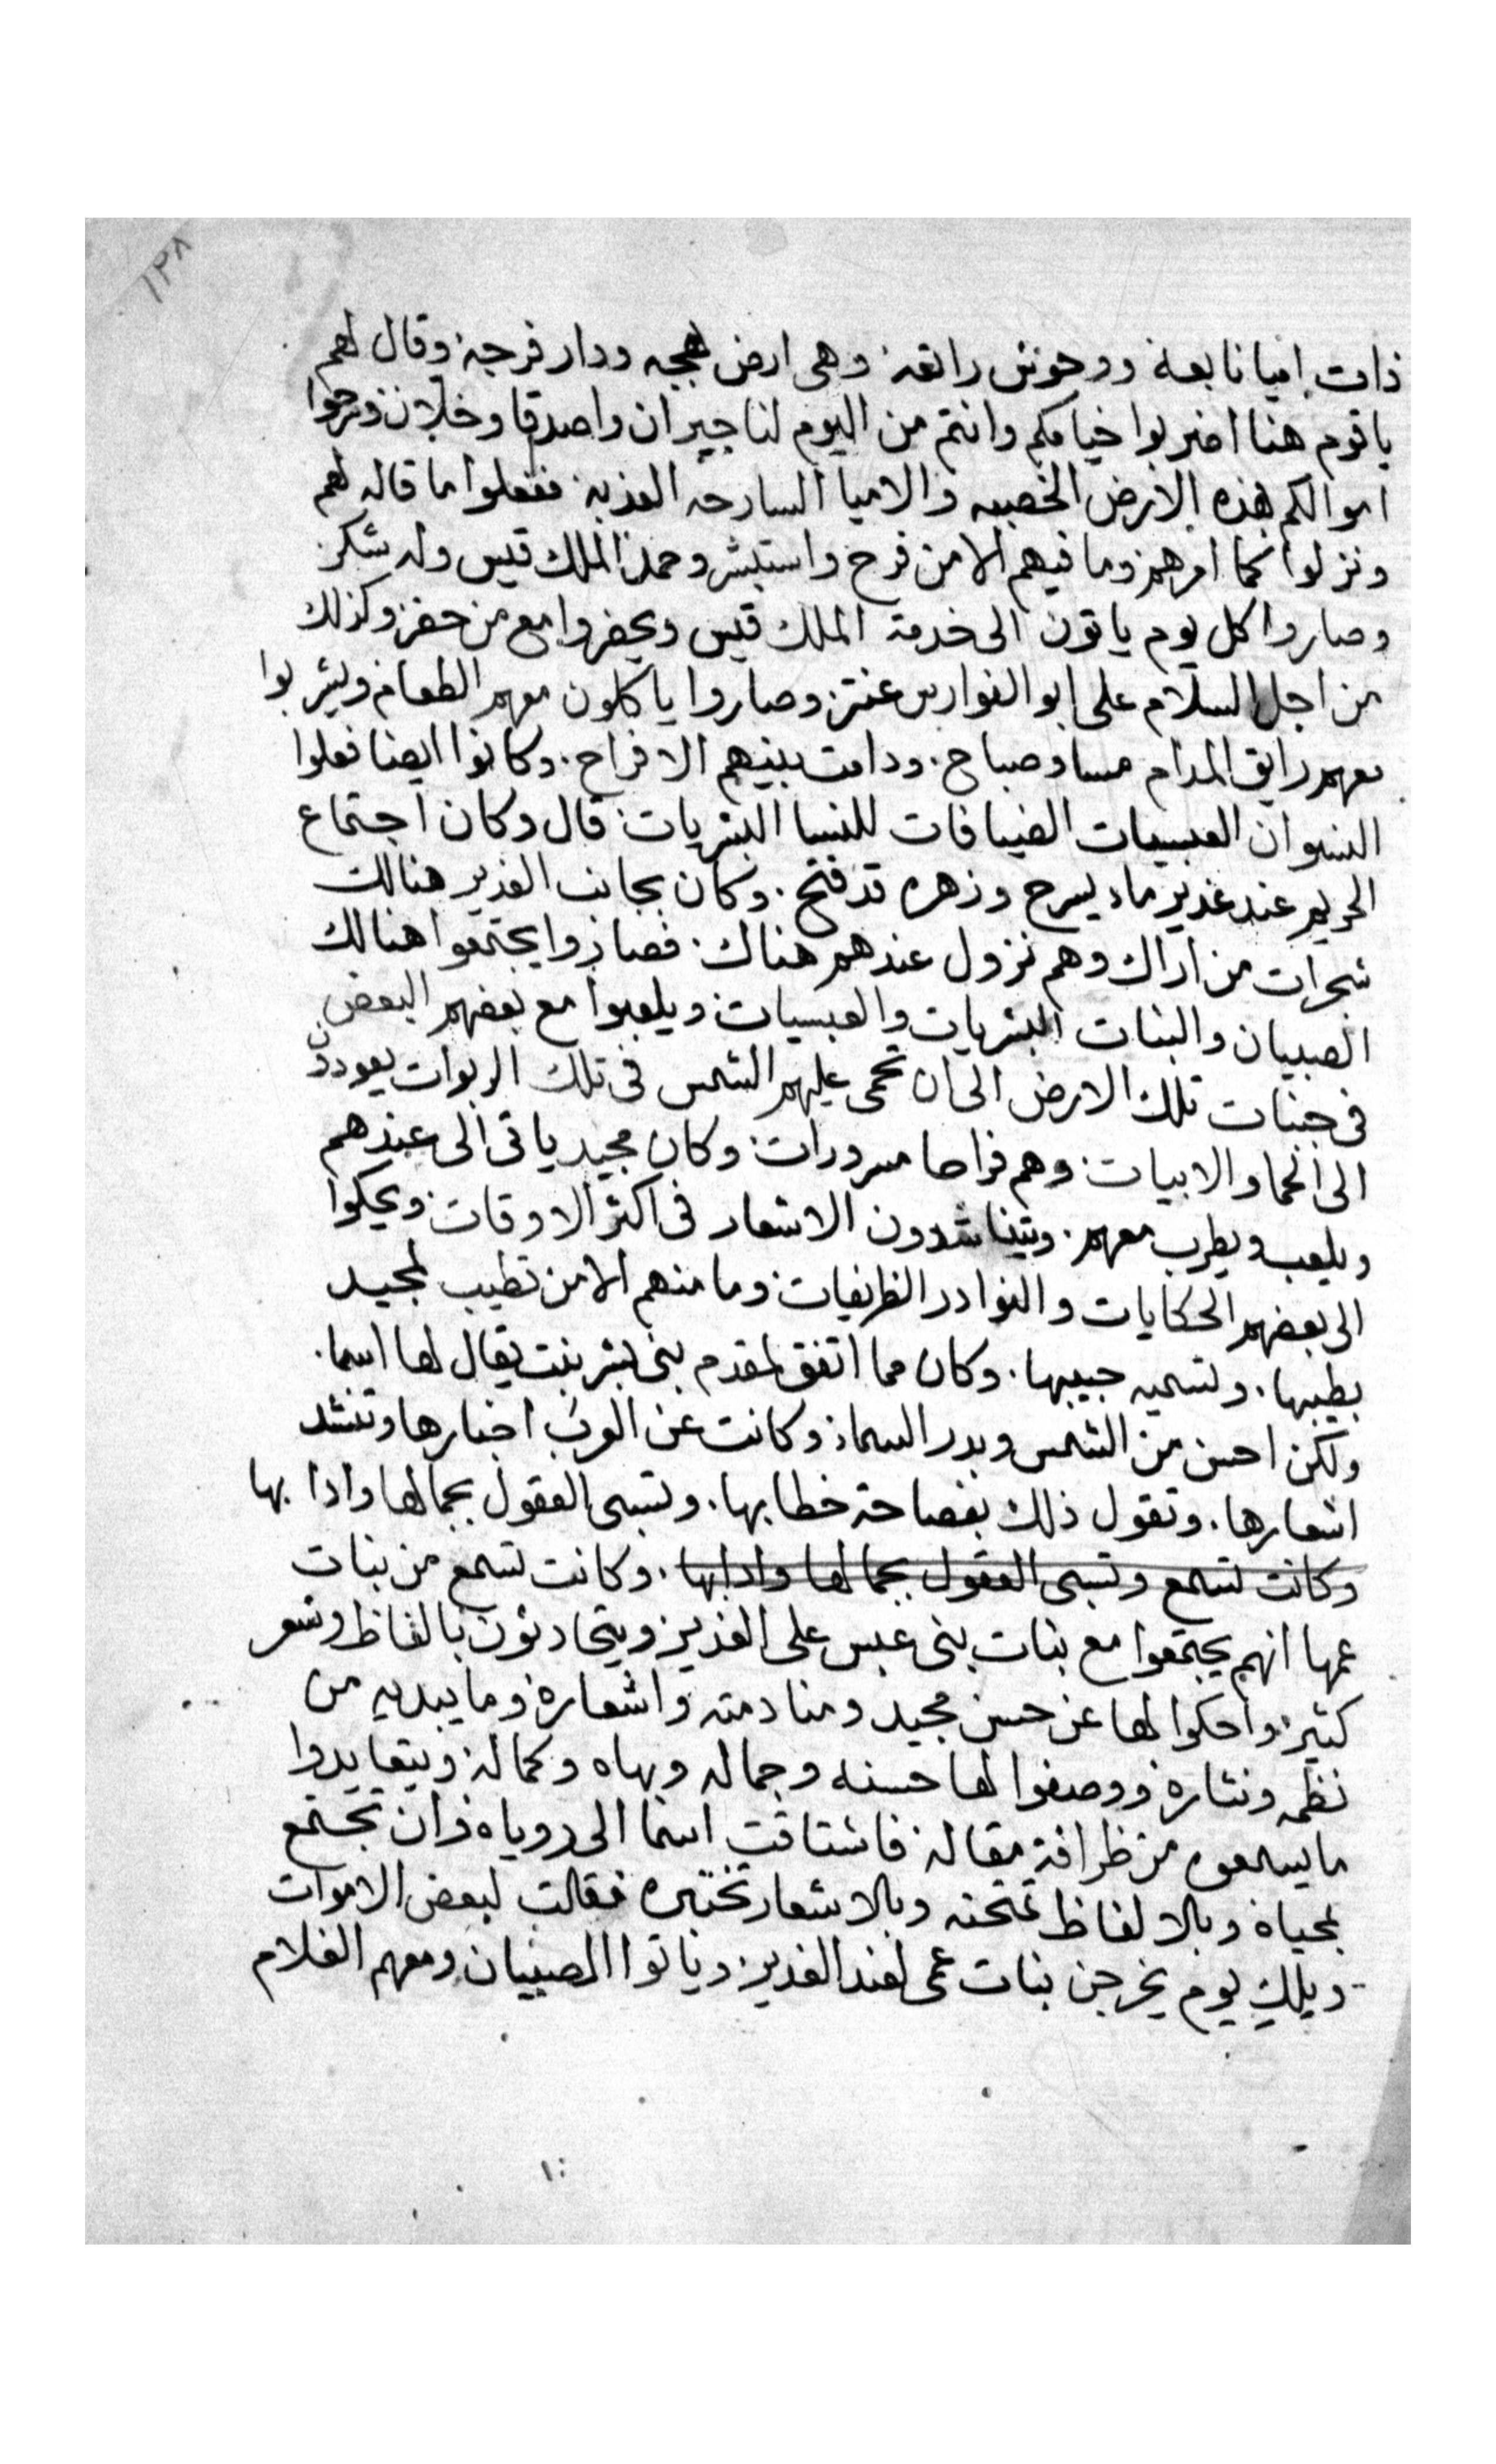 ١٢٨
ذات اميا نابعة ووحوش راتعة وهى ارض بهجه ودار فرجة وقال لهم
يا قوم هنا اضربوا خيامكم وانتم من اليوم لنا جيران واصدقا وخلان ومرحوا
اموالكم بهذه الارض الخصبه والاميا السارحه العذبه ففعلوا ما قاله لهم
ونزلوا كما امرهم وما فيهم الا من فرح واستبشر وحمد الملك قيس وله شكر
وصاروا كل يوم ياتون الى خدمة الملك قيس ويحضروا مع من حضر وكذلك
من اجل السلام على ابو الفوارس عنتر وصاروا ياكلون معهم الطعام ويشربوا
معهم رايق المدام مسا وصباح. ودامت بينهم الافراح. وكانوا ايضا فعلوا
النسوان العبسيات الضيافات للنسا البشريات قال وكان اجتماع
الحريم عند غدير ماء يسرح وزهره قد فتح. وكان بجانب الغدير هنالك
شجرات من اراك وهم نزول عندهم هناك. فصاروا يجتمعوا هنالك
الصبيان والبنات البشريات والعبسيات ويلعبوا مع بعضهم البعض
فى جنبات تلك الارض الى ان تحمى عليهم الشمس فى تلك الربوات يعودون
الى الحما والابيات وهم فراحا مسرورات وكان مجيد ياتى الى عندهم
ويلعب ويطرب معهم. ويتناشدون الاشعار فى اكثر الاوقات ويحكوا
الى بعضهم الحكايات والنوادر الظريفات وما منهم الا من تطيب لمجيد
بطيبها. وتسميه حبيبها. وكان مما اتفق لمقدم بنى بشر بنت يقال لها اسما.
ولكن احسن من الشمس وبدر السماء وكانت عن العرب اخبارها وتنشد
اشعارها. وتقول ذلك بفصاحة خطابها. وتسبى العقول بجمالها وادابها
وكانت تسمع وتسبى العقول بجمالها وادابها. وكانت تسمع من بنات
عمها انهم يجتمعوا مع بنات بنى عبس على الغدير ويتحادثون بالفاظ وشعر
كثير واحكوا لها عن حسن مجيد ومنادمته واشعاره وما يبديه من
نظمه ونثاره ووصفوا لها حسنه وجماله وبهاه وكماله ويتعايدوا
ما يسمعون من ظرافة مقاله فاشتاقت اسما الى روياه وان تجتمع
بمحياه وبالالفاظ تمتحنه وبالاشعار تختبره فقالت لبعض الاموات
ويلك يوم يخرجن بنات عمى لعند الغدير وياتوا الصبيان ومعهم الغلام